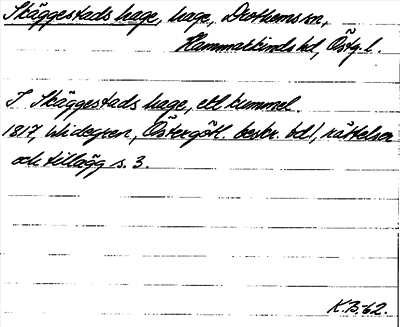 Skäggestads hage, hage, Drothems sn,
Hammarkinds hd, Östg. l.
I Skäggestads hage, ett kummel.
1817, Widegren, Östergötl. beskr. bd 1, rättelser
och tillägg s. 3.
K.B-62.